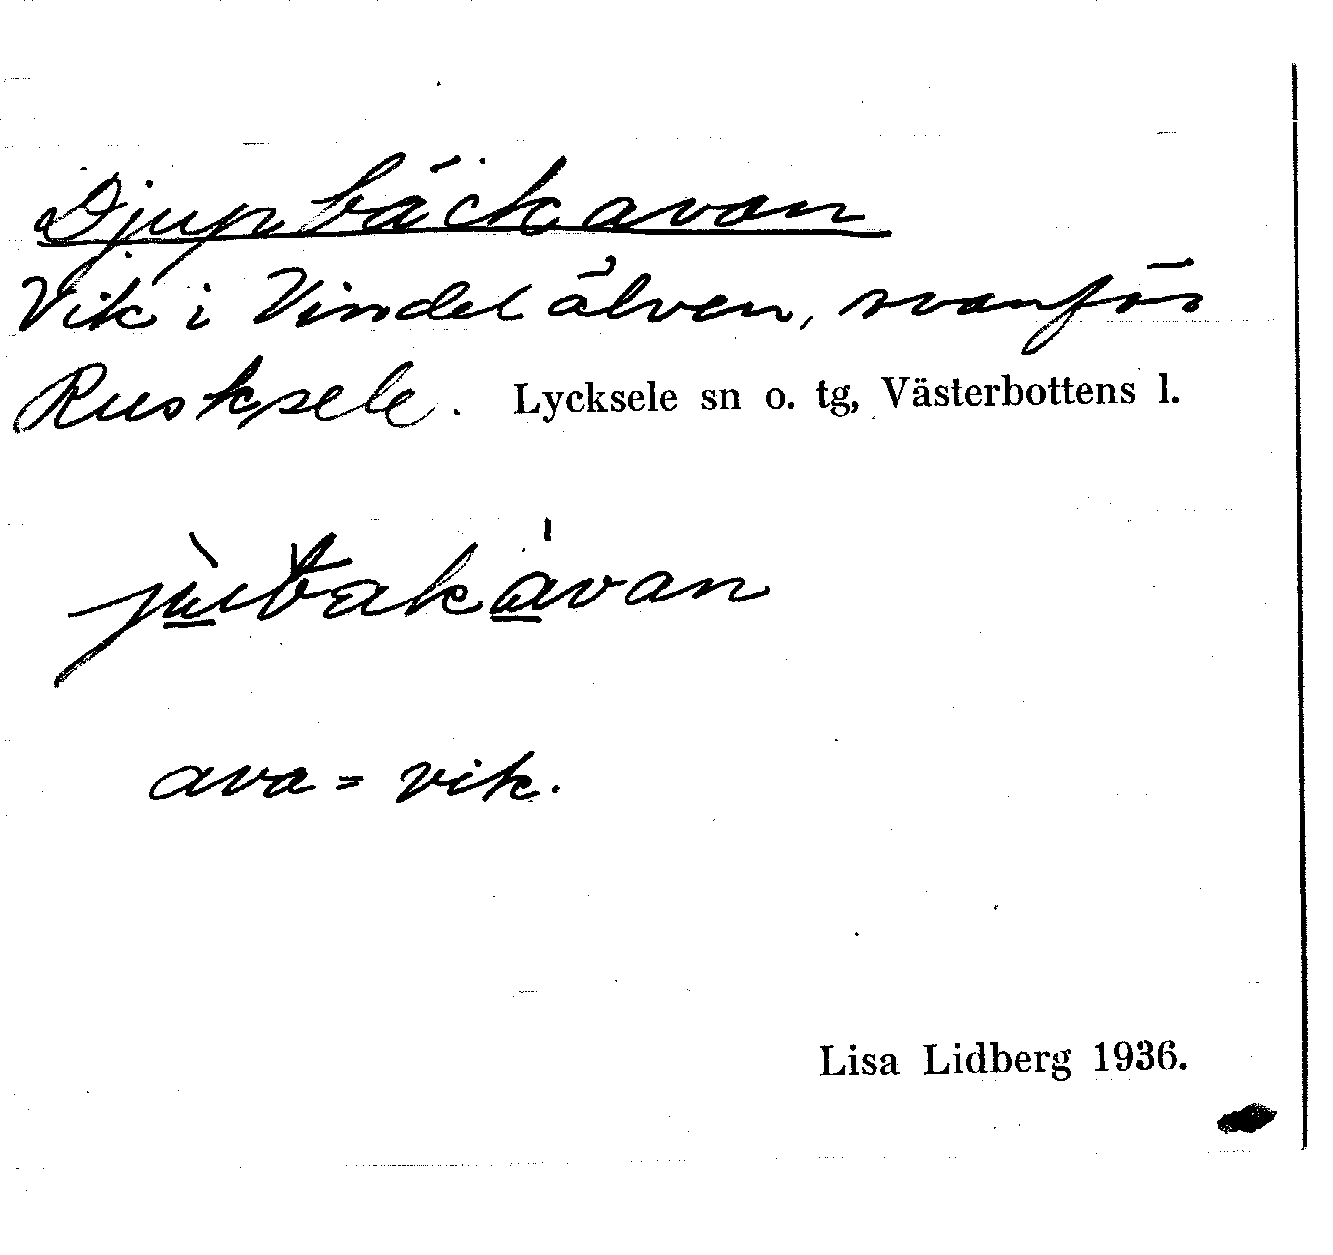 Djupbäckavan
Vik i Vindelälven, ovanför
Rusksele. Lycksele sn o. tg, Västerbottens l.
ava = vik.
Lisa Lidberg 1936.